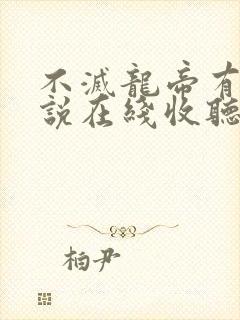 不滅龍帝有
說在綫收聽
柏尹